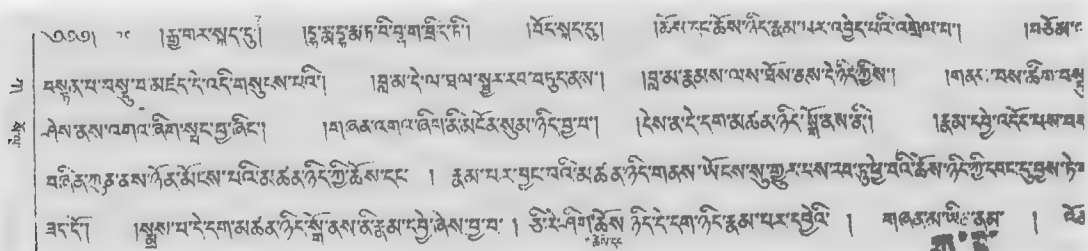 ༄༅༅། །རྒྱ་གར་སྐད་དུ། །དྷརྨ་དྷརྨ་ཏཱ་བི་བྷ་ག་བྲྀཏྟི། །བོད་སྐད་དུ། །ཆོས་དང་ཆོས་ཉིད་རྣམ་པར་འབྱེད་པའི་འགྲེལ་པ། །བཅོམ་
བསྟན་པ་བསྡུ་བ་མཛད་དེ་འདི་གསུངས་པའི། །བླ་མ་དེ་ལ་ཐལ་སྦྱར་རབ་བཏུད་ནས། །བླ་མ་རྣམས་ལས་ཐོས་ནས་དེ་ཉིད་ཀྱིས། །གནང་བས་ཚིག་
ཤེས་ནས་འགའ་ཞིག་སྤང་བྱ་ཞིང་། །གཞན་འགའ་ཞིག་ནི་མངོན་སུམ་ཉིད་བྱ་བ། །དེས་ན་དེ་དག་མཚན་ཉིད་སྒོ་ནས་ནི། །རྣམ་དབྱེ་འདོད་པས་
བཞིན་ཀུན་ནས་ཉོན་མོངས་པའི་མཚན་ཉིད་ཀྱི་ཆོས་དང་ ། རྣམ་པར་བྱང་བའི་མཚན་ཉིད་གནས་ཡོངས་སུ་གྱུར་པས་རབ་ཏུ་ཕྱེ་བའི་ཆོས་ཉིད་ཀྱི་དབང་དུ་བྱས་ཏེ་
ཟད་དོ། །སྨྲས་པ་དེ་དག་མཚན་ཉིད་སྒོ་ནས་ནི་རྣམ་དབྱེ་ཞེས་བྱ་བ ། ཅི་རེ་ཤིག་ཆོས་ཉིད་དེ་དག་ཉིད་རྣམ་པར་དབྱེའི ། གཞན་མ་ཡིན་ནམ །
ཆོས་དང